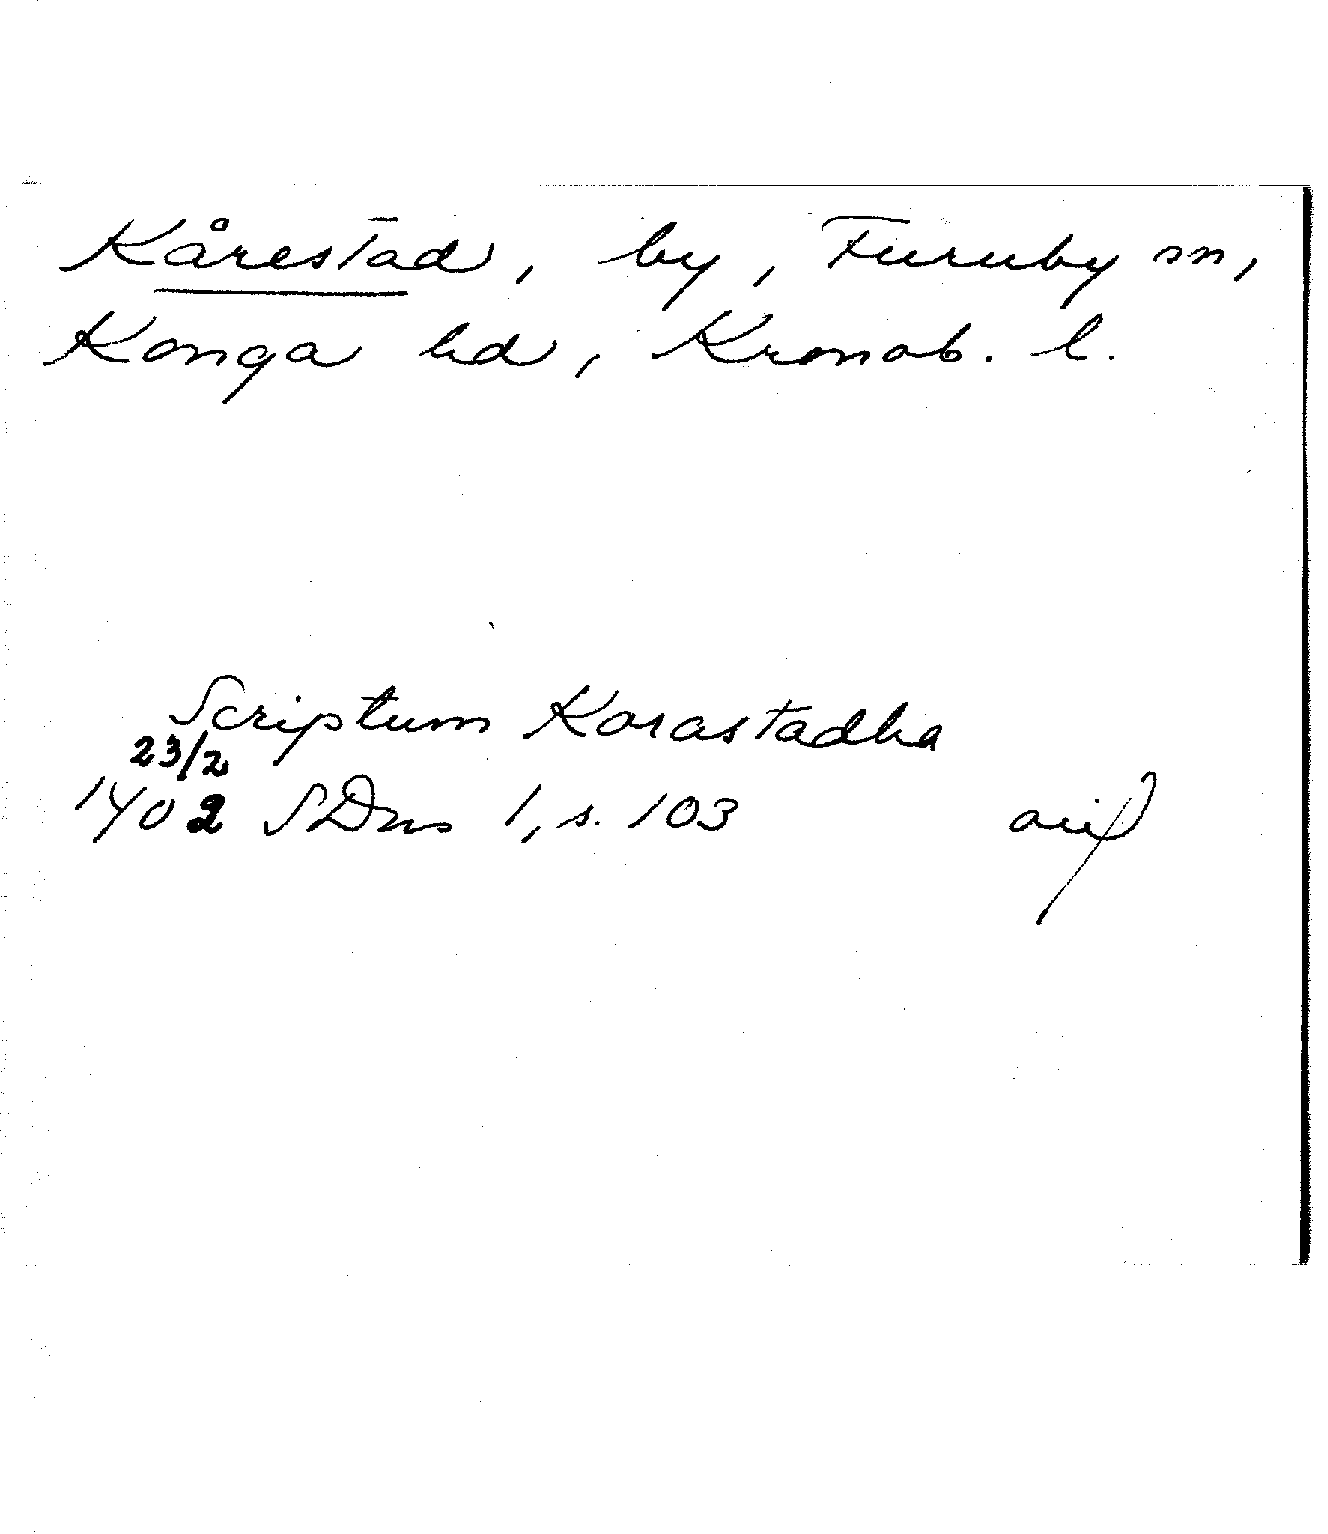 Kårestad, by, Furuby sn,
Konga hd, Kronob. l.
Scriptum Korastadha
23/2
1402 SDns 1, s. 103